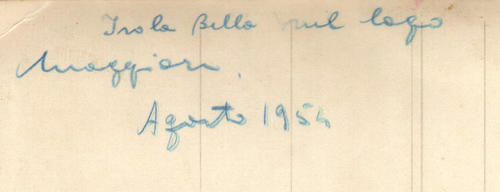 Isola Bella sul lago
Maggiore,
Agosto 1954